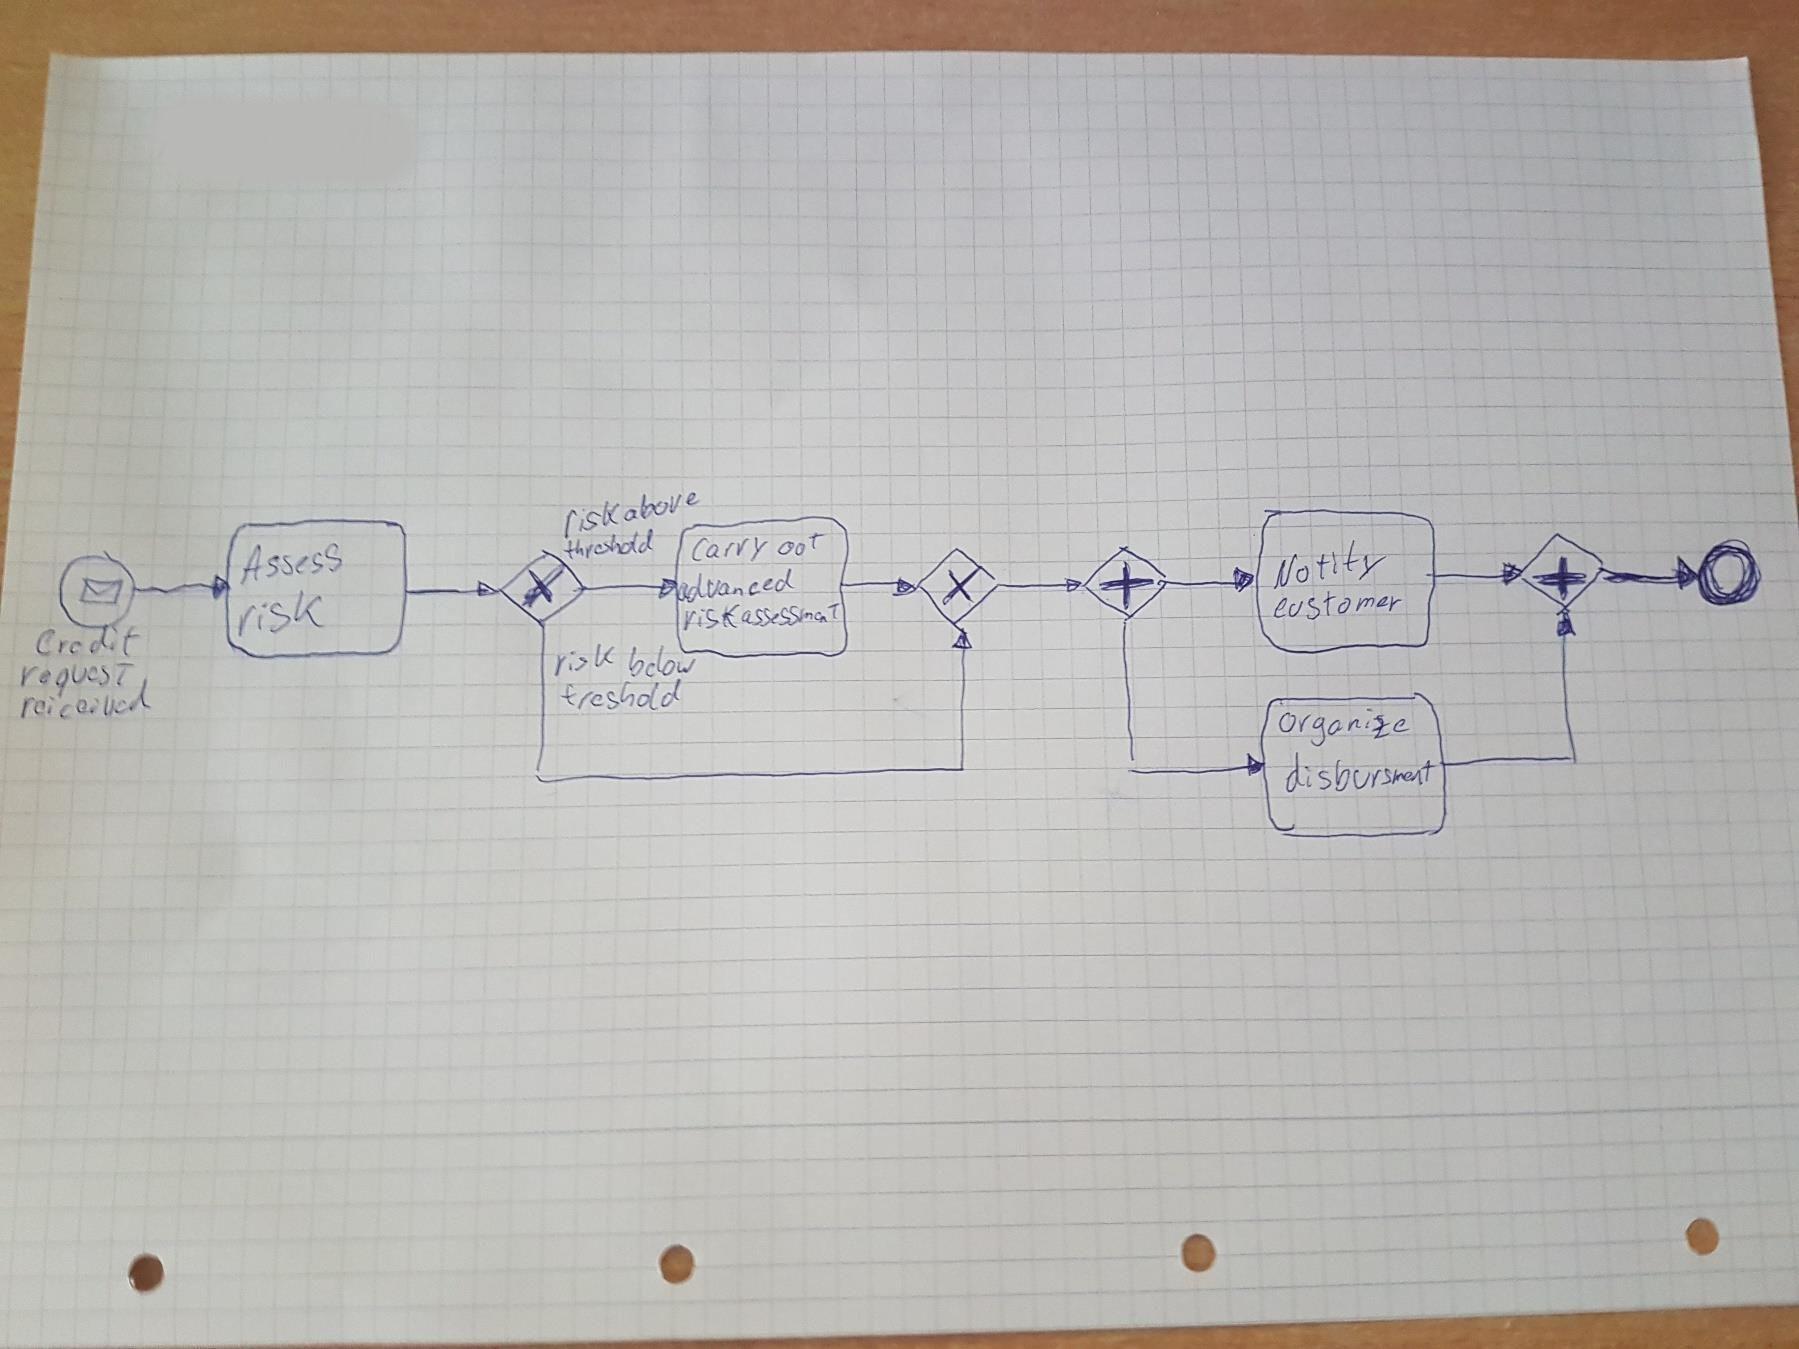 Credit
request
reiceived
Assess
risk
risk above
threshold
Carry out
advanced
risk assessment
risk below
treshold
Notify
customer
Organize
disbursment